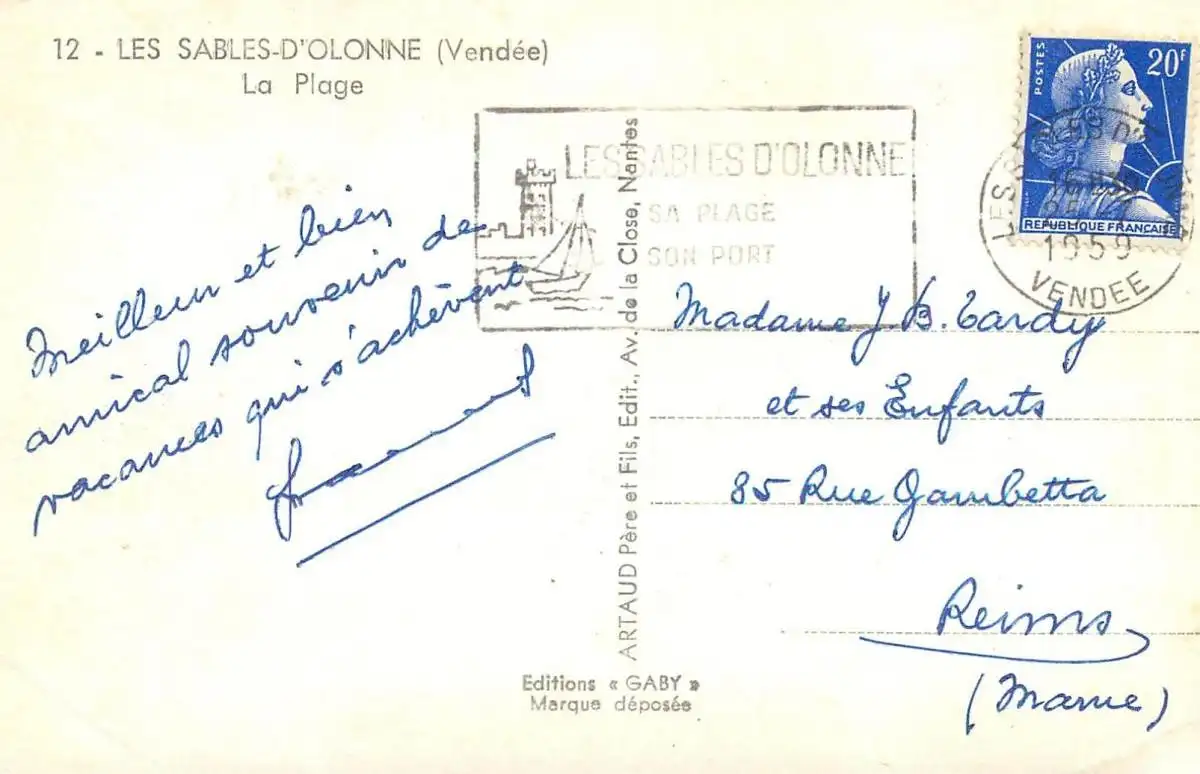 12 - LES SABLES-D'OLONNE (Vendée)
La Plage
POSTES
20F
REPUBLIQUE FRANÇAISE
LES SABLES D'OLONNE
SA PLAGE
SON PORT
1959
VENDEE
Meilleur et bien
amical souvenir de
vacances qui s'achèvent
Madame J B. Tardy
et ses Enfants
85 Rue Gambetta
Reims
(Marne)
ARTAUD Père et Fils, Edit., Av. de la Close, Nantes
Editions « GABY »
Marque déposée